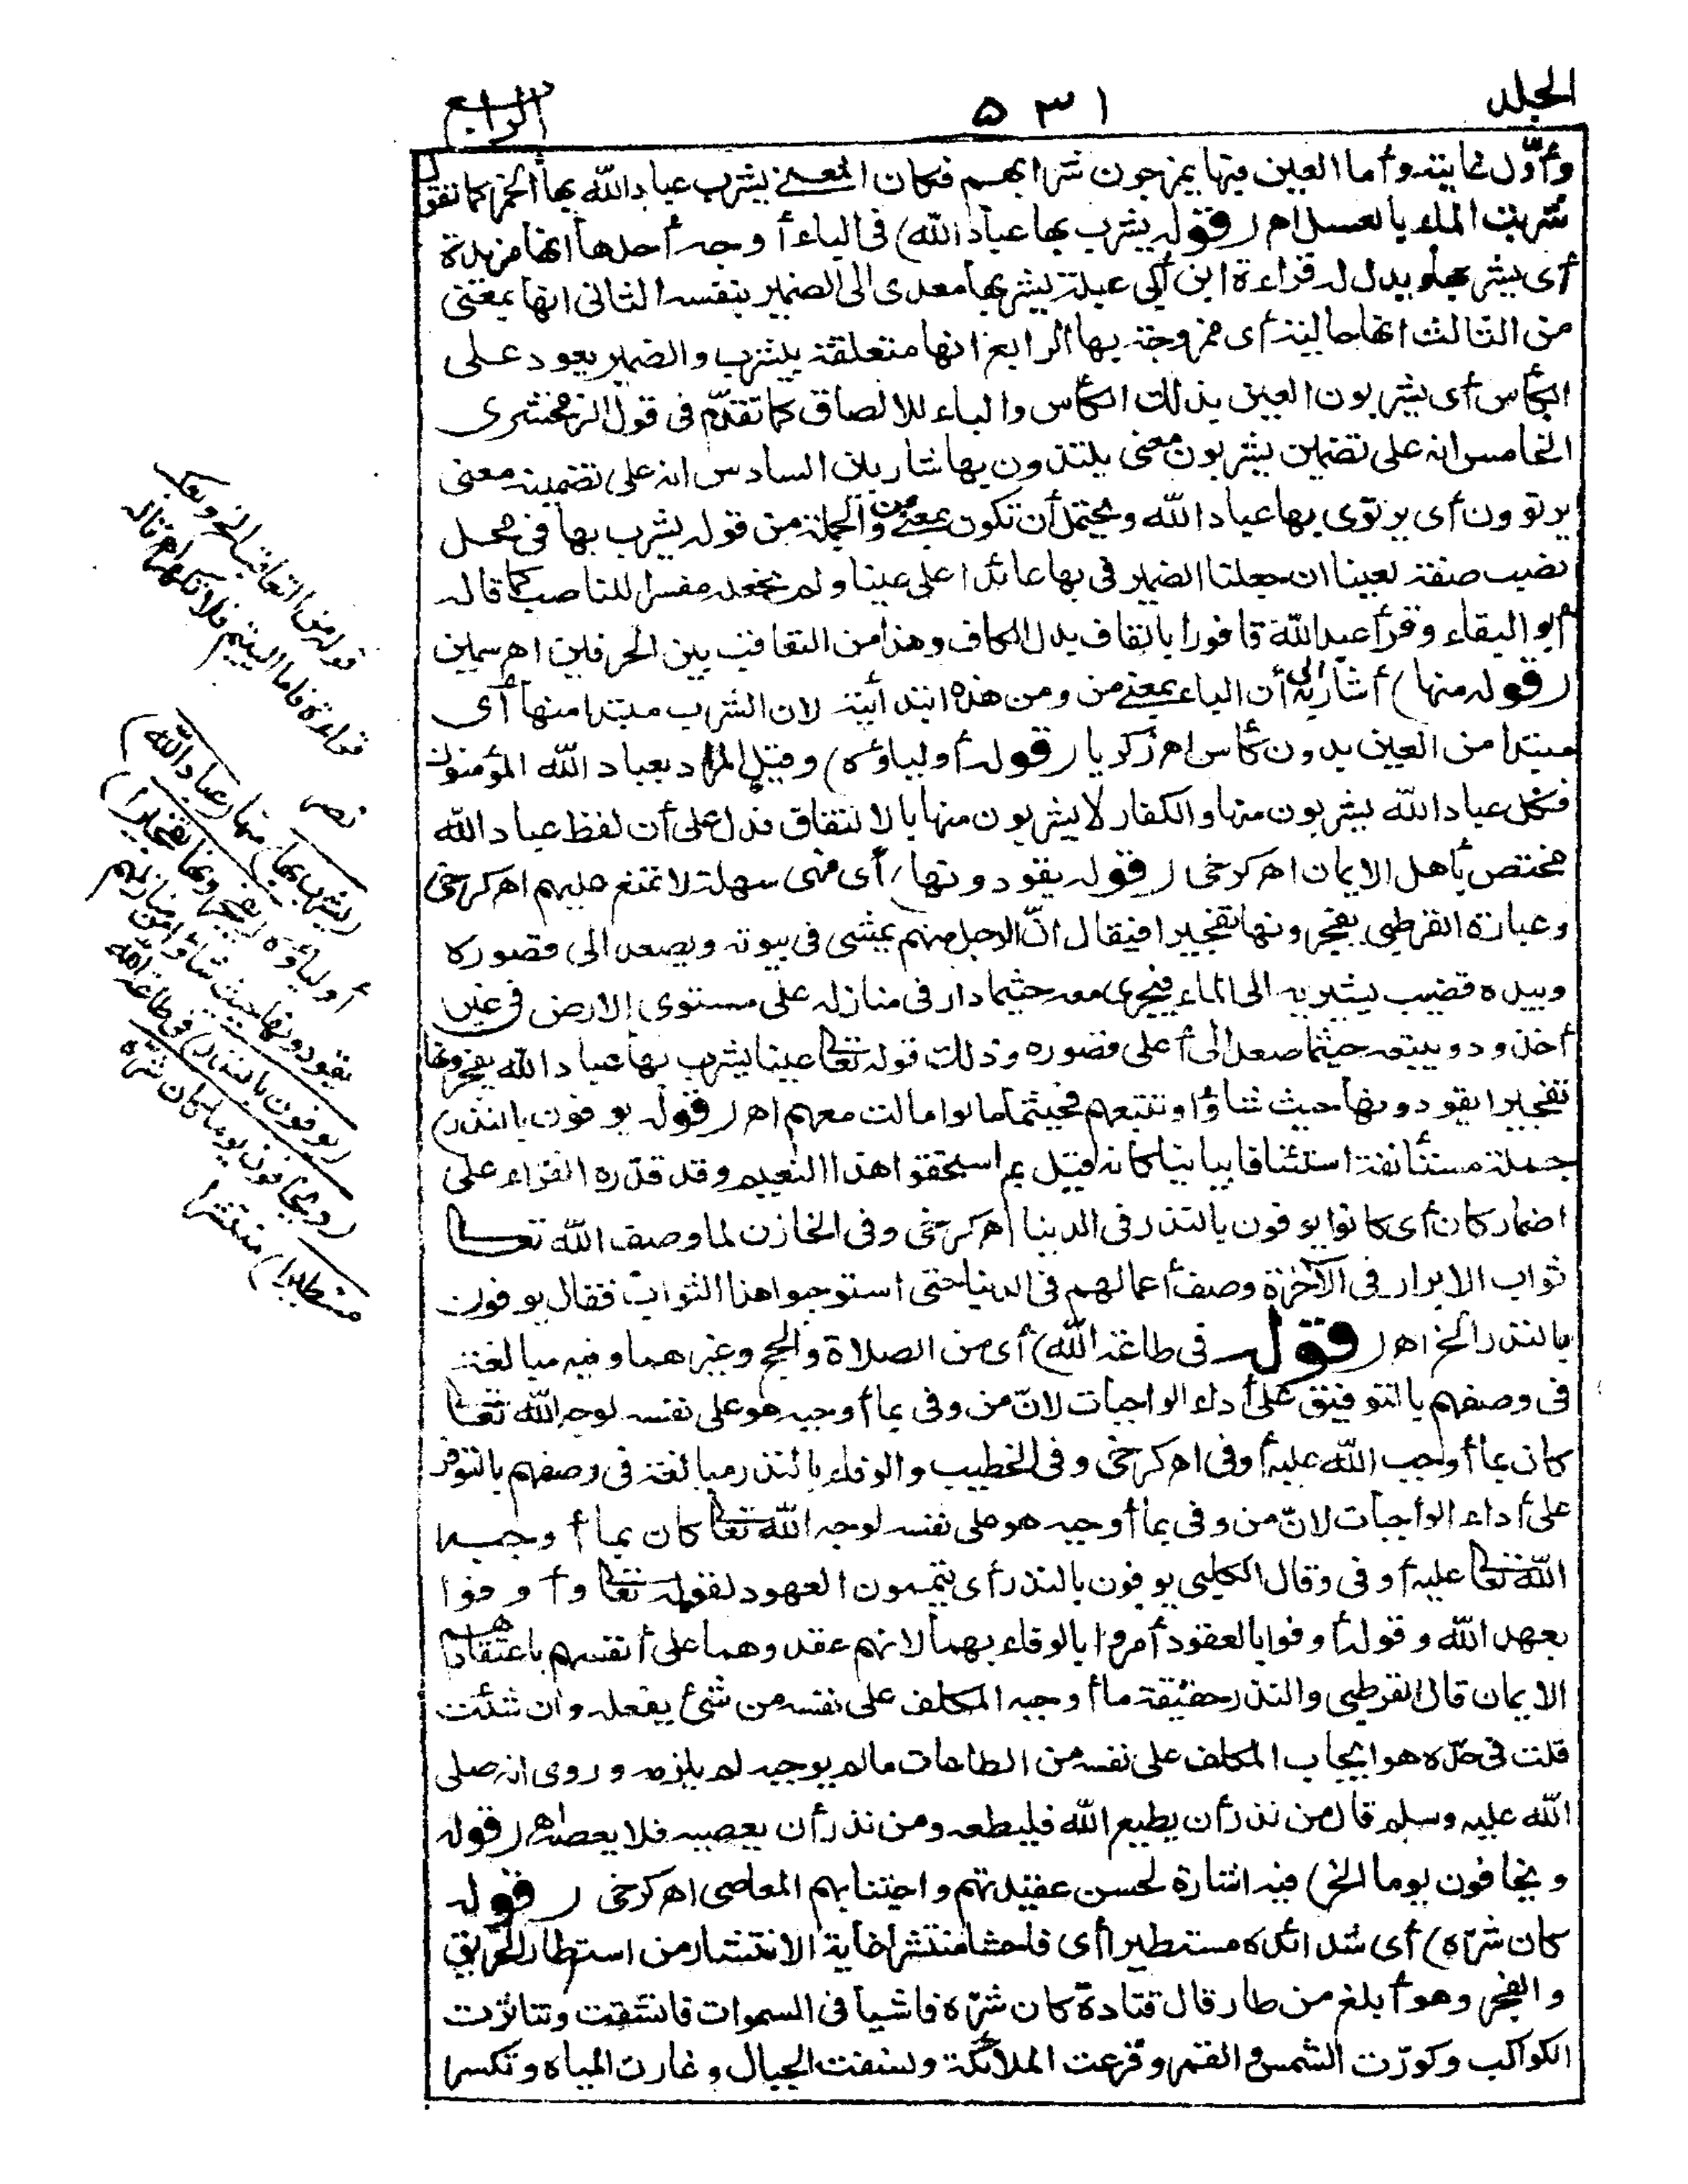 الجلد
٥٣١
الرابع
وأوّل غايته وأما العين فبها يمزجون شرابهم فكان المعنى يشرب عباد الله بها الخمر كما تقول
شربت الماء بالعسل اهـ (قوله يشرب بها عباد الله) فى الباء أوجه أحدها انها مزيدة
أى يشربها ويدل له قراءة ابن أبى عبلة يشربها معدى الى الضمير بنفسه الثانى انها بمعنى
من الثالث انها حالية أى ممزوجة بها الرابع انها متعلقة بيشرب والضمير يعود على
الكأس أى يشربون العين بذلك الكأس والباء للالصاق كما تقدّم فى قول الزمخشرى
الخامس انه على تضمين يشربون معنى يلتذون بها شاربين السادس انه على تضمينه معنى
يرتوون أى يرتوى بها عباد الله ويحتمل أن تكون بمعنى من والجملة من قوله يشرب بها فى محل
نصب صفة لعينا ان جعلنا الضمير فى بها عائدا على عينا ولم نجعله مفسرا للناصب كما قاله
أبو البقاء وقرأ عبد الله قافورا بالقاف بدل الكاف وهذا من التعاقب بين الحرفين اهـ سمين
(قوله منها) أشار به الى أن الباء بمعنى من ومن هذه ابتدائية لان الشرب مبتدا منها أى
مبتدا من العين بدون كأس اهـ زكريا (قوله أولياؤه) وقيل المراد بعباد الله المؤمنون
فكل عباد الله يشربون منها والكفار لا يشربون منها بالاتفاق فدل على أن لفظ عباد الله
مختص بأهل الايمان اهـ كرخى (قوله يقودونها) أى فهى سهلة لا تمتنع عليهم اهـ كرخى
وعبارة القرطبى يفجرونها تفجيرا فيقال انّ الرجل منهم يمشى فى بيوته ويصعد الى قصوره
وبيده قضيب يشير به الى الماء فيجرى معه حيثما دار فى منازله على مستوى الارض فى غير
أخذود ويتبعه حيثما صعد الى أعلى قصوره وذلك قوله تعالى عينا يشرب بها عباد الله يفجرونها
تفجيرا يقودونها حيث شاؤا وتتبعهم فحيثما مالوا مالت معهم اهـ (قوله يوفون بالنذر)
جملة مستأنفة استئنافا بيانيا كانه قيل بم استحقوا هذا النعيم وقد قدّره الفراء على
اضمار كان أى كانوا يوفون بالنذر فى الدنيا اهـ كرخى وفى الخازن لما وصف الله تعالى
ثواب الابرار فى الآخرة وصف أعمالهم فى الدنيا حتى استوجبوا هذا الثواب فقال يوفون
بالنذر الخ اهـ (قوله فى طاعة الله) أى من الصلاة والحج وغيرهما وفيه مبالغة
فى وصفهم بالتوفيق على أداء الواجبات لانّ من وفى بما أوجبه هو على نفسه لوجه الله تعالى
كان بما أوجب الله عليه أوفى اهـ كرخى وفى الخطيب والوفاء بالنذر مبالغة فى وصفهم بالتوفر
على أداء الواجبات لانّ من وفى بما أوجبه هو على نفسه لوجه الله تعالى كان بما أوجبه
الله تعالى عليه أوفى وقال الكلبى يوفون بالنذر أى يتممون العهود لقوله تعالى وأوفوا
بعهد الله وقوله أوفوا بالعقود أمروا بالوفاء بهما لانهم عقدوهما على أنفسهم باعتقادهم
الايمان قال القرطبى والنذر حقيقته ما أوجبه المكلف على نفسه من شئ يفعله وان شئت
قلت فى حدّه هو ايجاب المكلف على نفسه من الطاعات ما لم يوجبه لم يلزمه وروى انه صلى
الله عليه وسلم قال من نذر أن يطيع الله فليطعه ومن نذر أن يعصيه فلا يعصه اهـ (قوله
ويخافون يوما الخ) فيه اشارة لحسن عقيدتهم واجتنابهم المعاصى اهـ كرخى (قوله
كان شرّه) أى شدائده مستطيرا أى فاحشا منتشرا غاية الانتشار من استطار الحريق
والفجر وهو أبلغ من طار قال قتادة كان شرّه فاشيا فى السموات فانشقت وتناثرت
الكواكب وكوّرت الشمس والقمر وفزعت الملائكة ونسفت الجبال وغارت المياه وتكسرا
قوله من التعاقب الخ
قراءة فاما اليتيم فلا تكهر اهـ
نصر
(يشرب بها) منها (عباد الله)
أولياؤه (يفجرونها تفجيرا)
يقودونها حيث شاؤا من منازلهم
(يوفون بالنذر) فى طاعة الله
(ويخافون يوما كان شرّه
مستطيرا) منتشرا